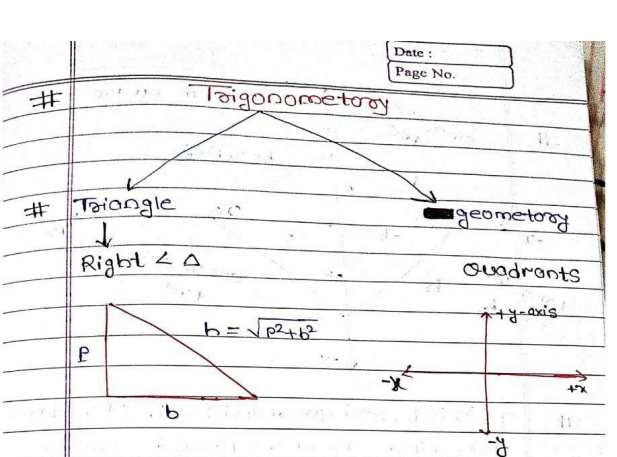 Date :
Page No.
# Trigonometory
# Triangle
geometory
Right ∠ Δ
Quadrants
h = √p²+b²
P
b
+y-axis
-x
+x
-y